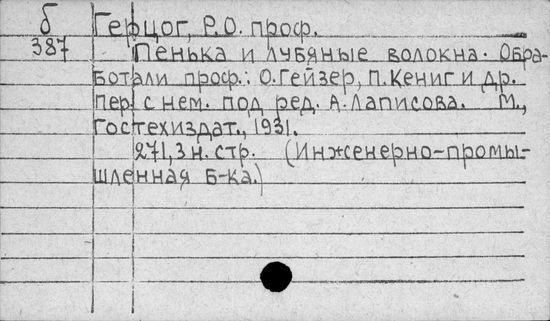 б Герцог, Р.О. проф.
387 Пенька и лубяные волокна. Обра-
ботали проф.: О.Гейзер, П.Кениг и др.
Пер. с нем. под ред. А.Лаписова. М.,
Гостехиздат., 1931.
271,3 н. стр. (Инженерно-промы-
шленная Б-ка.)